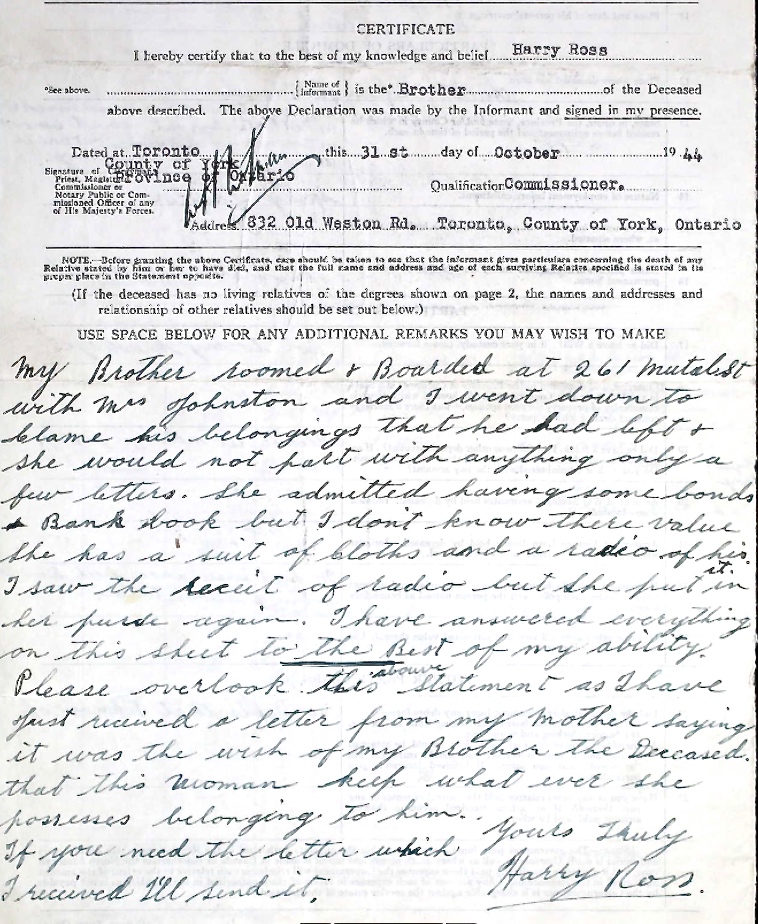 CERTIFICATE
I hereby certify that to the best of my knowledge and belief Harry Ross
*See above. {Name of Informant} is the* Brother of the Deceased
above described. The above Declaration was made by the Informant and signed in my presence.
Dated at Toronto this 31st day of October 1944
County of York
Province of Ontario
Signature of
Priest, Magistrate
Commissioner or
Notary Public or Com-
missioned Officer of any
of His Majesty's Forces.
Qualification Commissioner.
Address 832 Old Weston Rd. Toronto, County of York, Ontario
NOTE.—Before granting the above Certificate, care should be taken to see that the informant gives particulars concerning the death of any
Relative stated by him or her to have died, and that the full name and address and age of each surviving Relative specified is stated in its
proper place in the Statement opposite.
(If the deceased has no living relatives of the degrees shown on page 2, the names and addresses and
relationship of other relatives should be set out below.)
USE SPACE BELOW FOR ANY ADDITIONAL REMARKS YOU MAY WISH TO MAKE
My Brother roomed & Boarded at 261 Mutual St
with Mrs Johnston and I went down to
Clame his belongings that he had left &
she would not part with anything only a
few letters. She admitted having some bonds
& Bank book but I don't know there value
she has a suit of Cloths and a radio of his.
I saw the receit of radio but she put it in
her purse again. I have answered everything
on this sheet to the Best of my ability.
Please overlook this above Statement as I have
Just received a letter from my Mother saying
it was the wish of my Brother the Deceased.
that this Woman keep what ever she
possesses belonging to him.
Yours Truly
If you need the letter which
Harry Ross.
I received I'll send it.